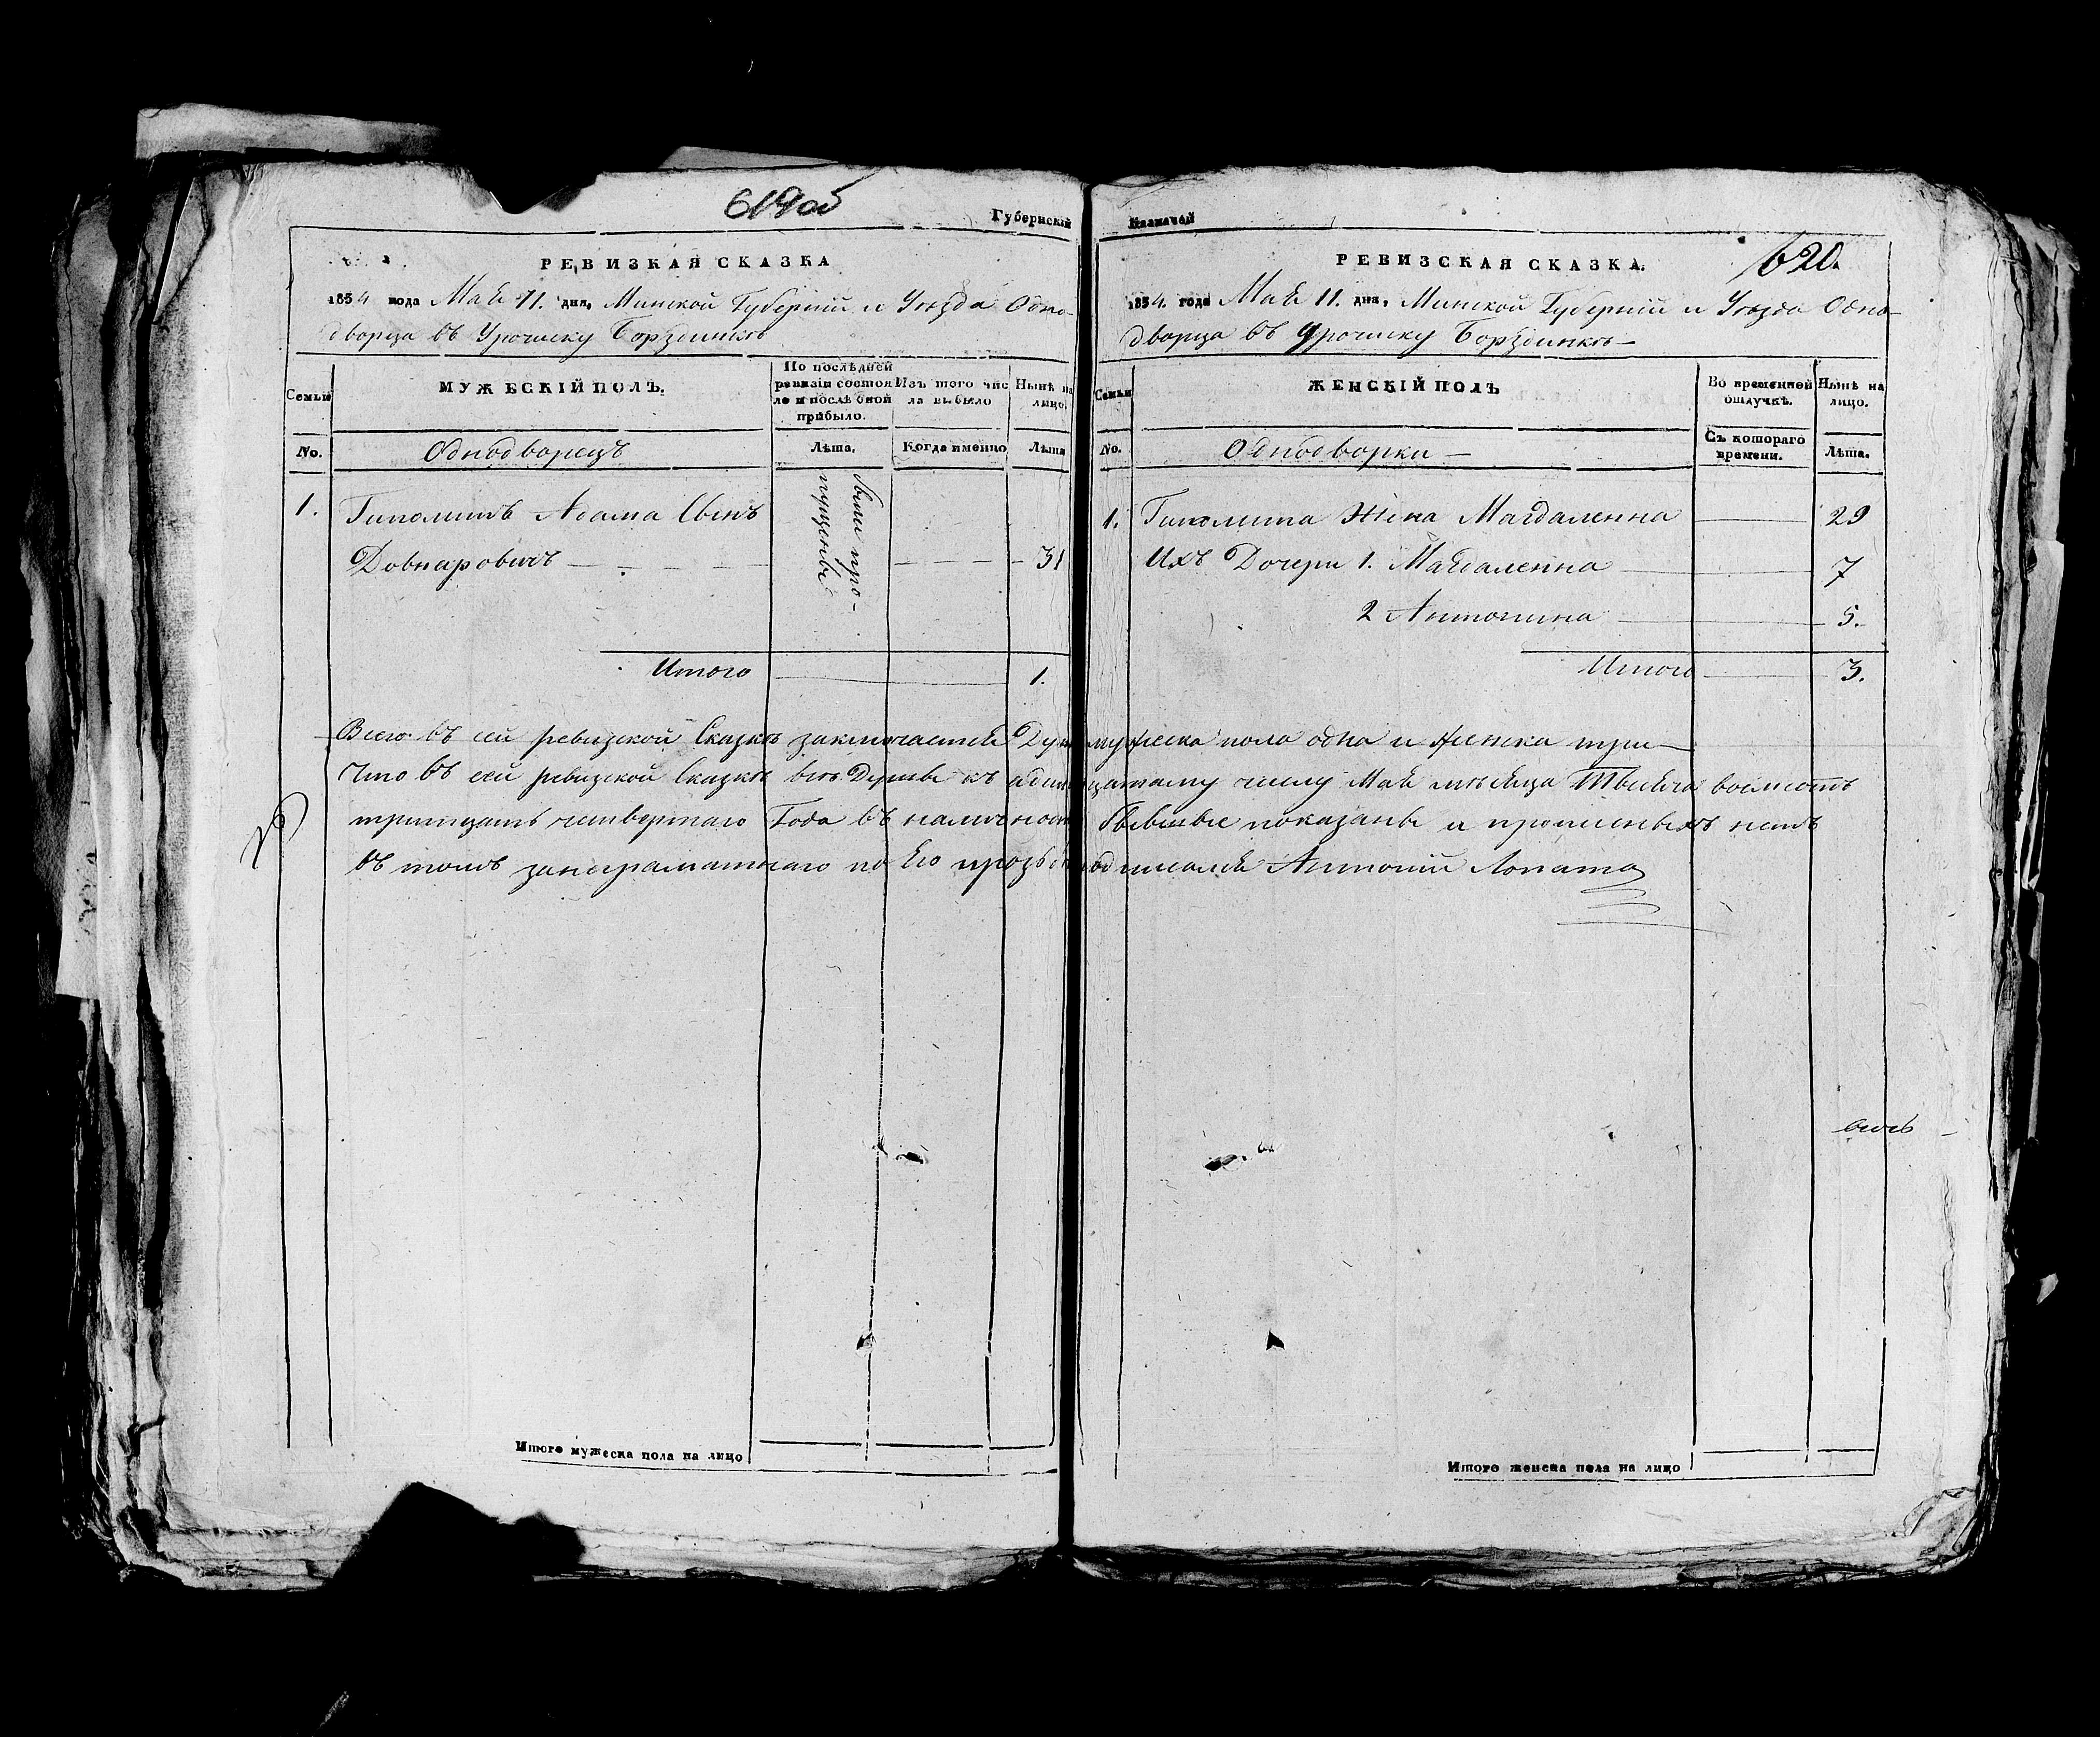 619об
Губернскій
РЕВИЗКАЯ СКАЗКА
1834 года Мая 11. дня, Минской Губерніи и Уѣзда Одно-
дворца въ Урочиску
Семьи
МУЖЕСКІЙ ПОЛЪ.
По послѣдней ревизіи состояло и послѣ оной прибыло.
Изъ того числа выбыло
Нынѣ на лицо.
No.
Однодворецъ
Лѣта.
Когда именно
Лѣта
1. Гиполитъ Адама Сынъ
были про-
пущены
Довнаровичъ 31
Итого 1.
Казначей
620.
РЕВИЗСКАЯ СКАЗКА.
1834. года Мая 11. дня, Минской Губерніи и Уѣзда Одно-
дворца въ Урочиску
Семьи
ЖЕНСКІЙ ПОЛЪ
Во временной отлучкѣ.
Нынѣ на лицо.
No.
Однодворки
Съ котораго времени.
Лѣта.
1. Гиполита Жена Магдаленна 29
Ихъ Дочери 1. Магдаленна 7
2 Антонина 5.
Итого 3.
Всего въ сей ревизской Сказкѣ заключается Душ мужеска пола одна и женска три
Что въ сей ревизской Сказкѣ всѣ Душы къ адинцатому числу Мая мѣсяца Тысяча восмсотъ
тритцать четвертаго Года въ наличност бывшые показаны и прописныхъ нетъ
въ томъ занеграматнаго по Его прозьбѣ подписался Антоній Лопата
Итого мужеска пола на лицо
Итого женска пола на лицо